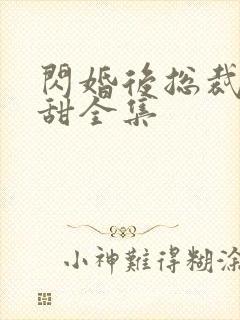 閃婚後总裁
甜全集
小神難得糊涂